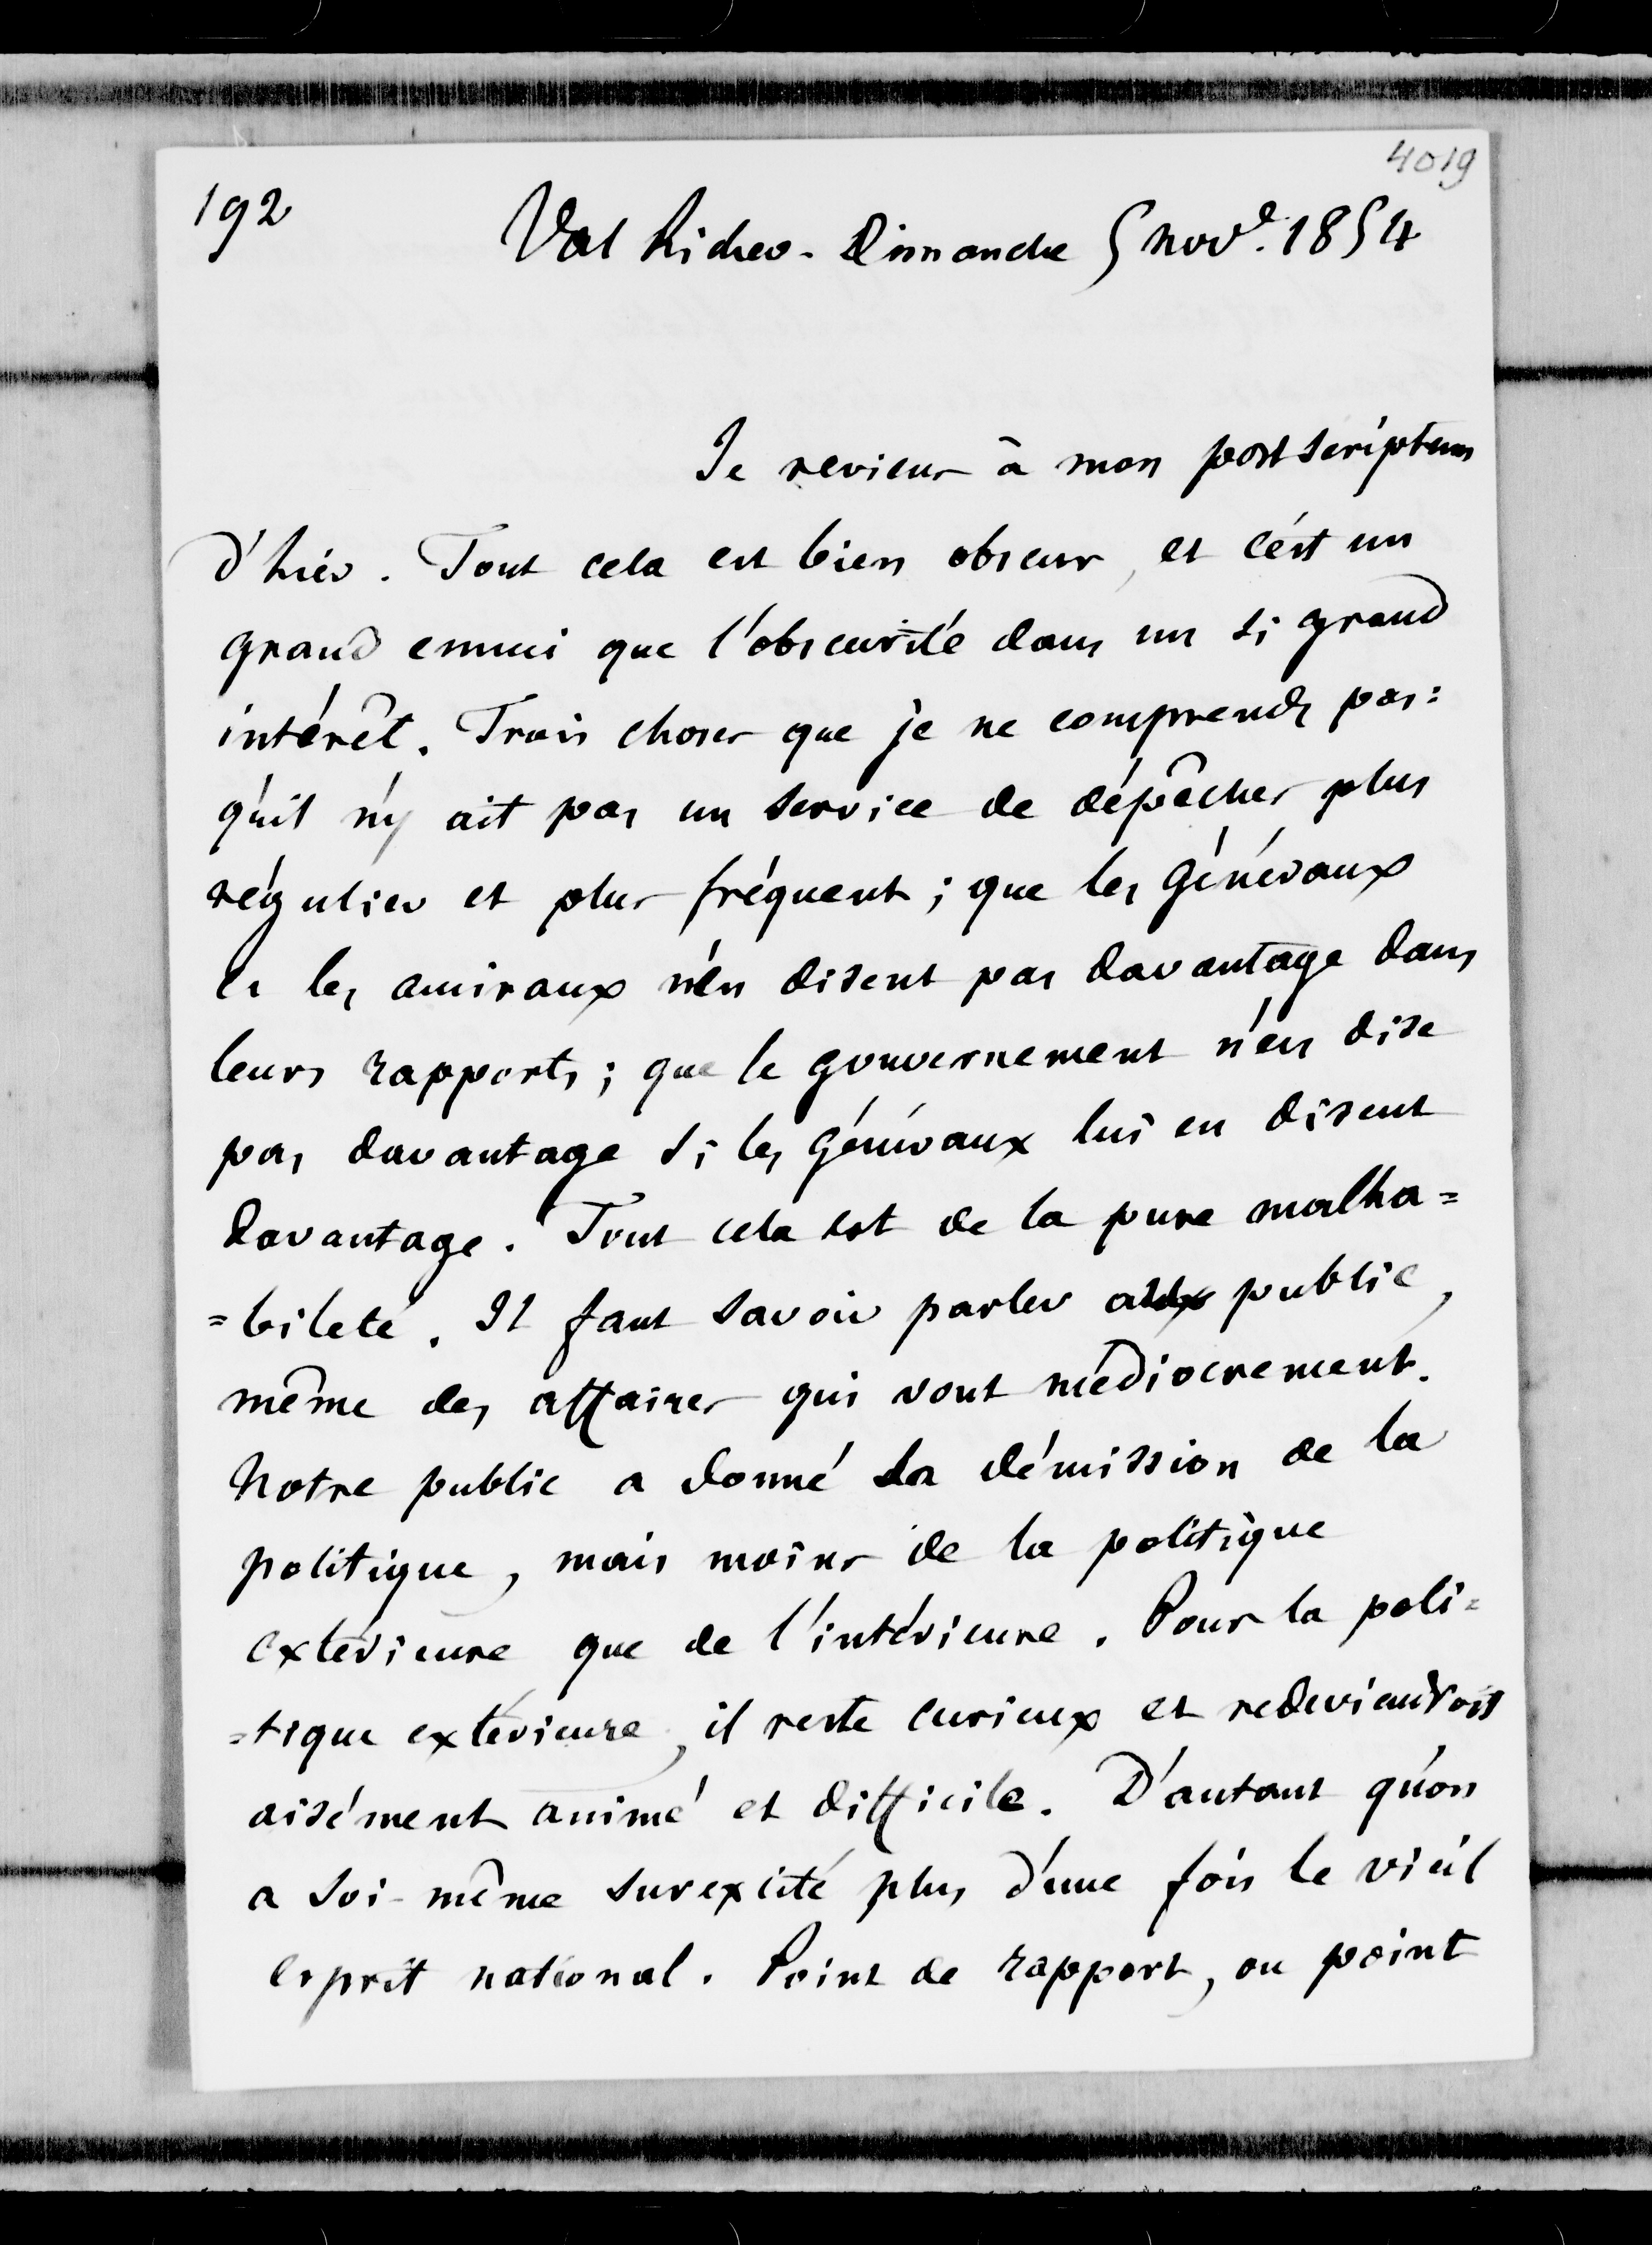 4019
192
Val Richer - Dimanche 5 nov.e 1854
Je reviens à mon postscriptum
d'hier. Tout cela est bien obscur, et c'est un
grand ennui que l'obscurité dans un si grand
intérêt. Trois choses que je ne comprends pas :
qu'il n'y ait pas un service de dépêches plus
régulier et plus fréquent ; que les Généraux
et les amiraux n'en disent pas davantage dans
leurs rapports ; que le gouvernement n'en dise
pas davantage si les Généraux lui en disent
davantage. Tout cela est de la pure malha=
=bileté. Il faut savoir parler au public,
même des affaires qui vont médiocrement.
Notre public a donné sa démission de la
politique, mais moins de la politique
extérieure que de l'intérieure. Pour la poli=
=tique extérieure, il reste curieux et redeviendroit
aisément animé et difficile. D'autant qu'on
a soi-même surexcité plus d'une fois le vieil
esprit national. Point de rapport, ou point